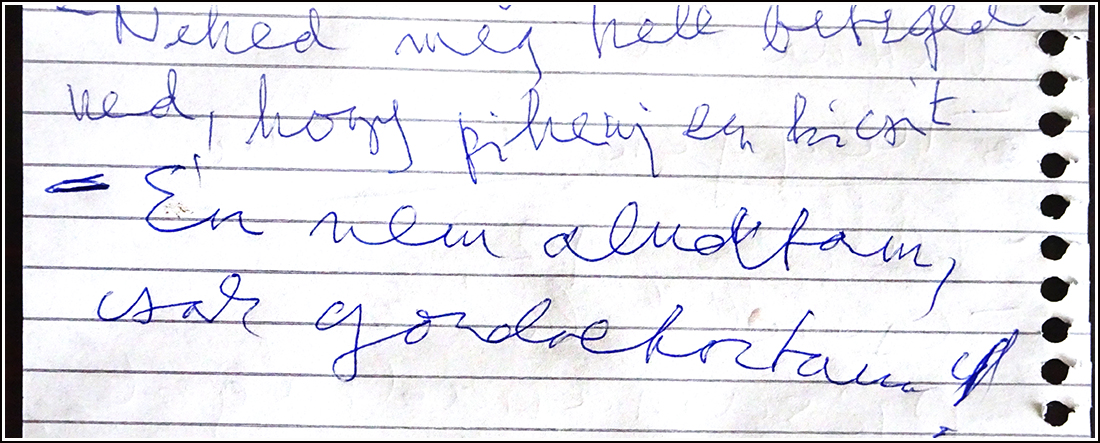 - Neked még kell beteged
ned, hogy pihenj egy kicsit.
- Én nem aludtam,
csak gondolkoztam.